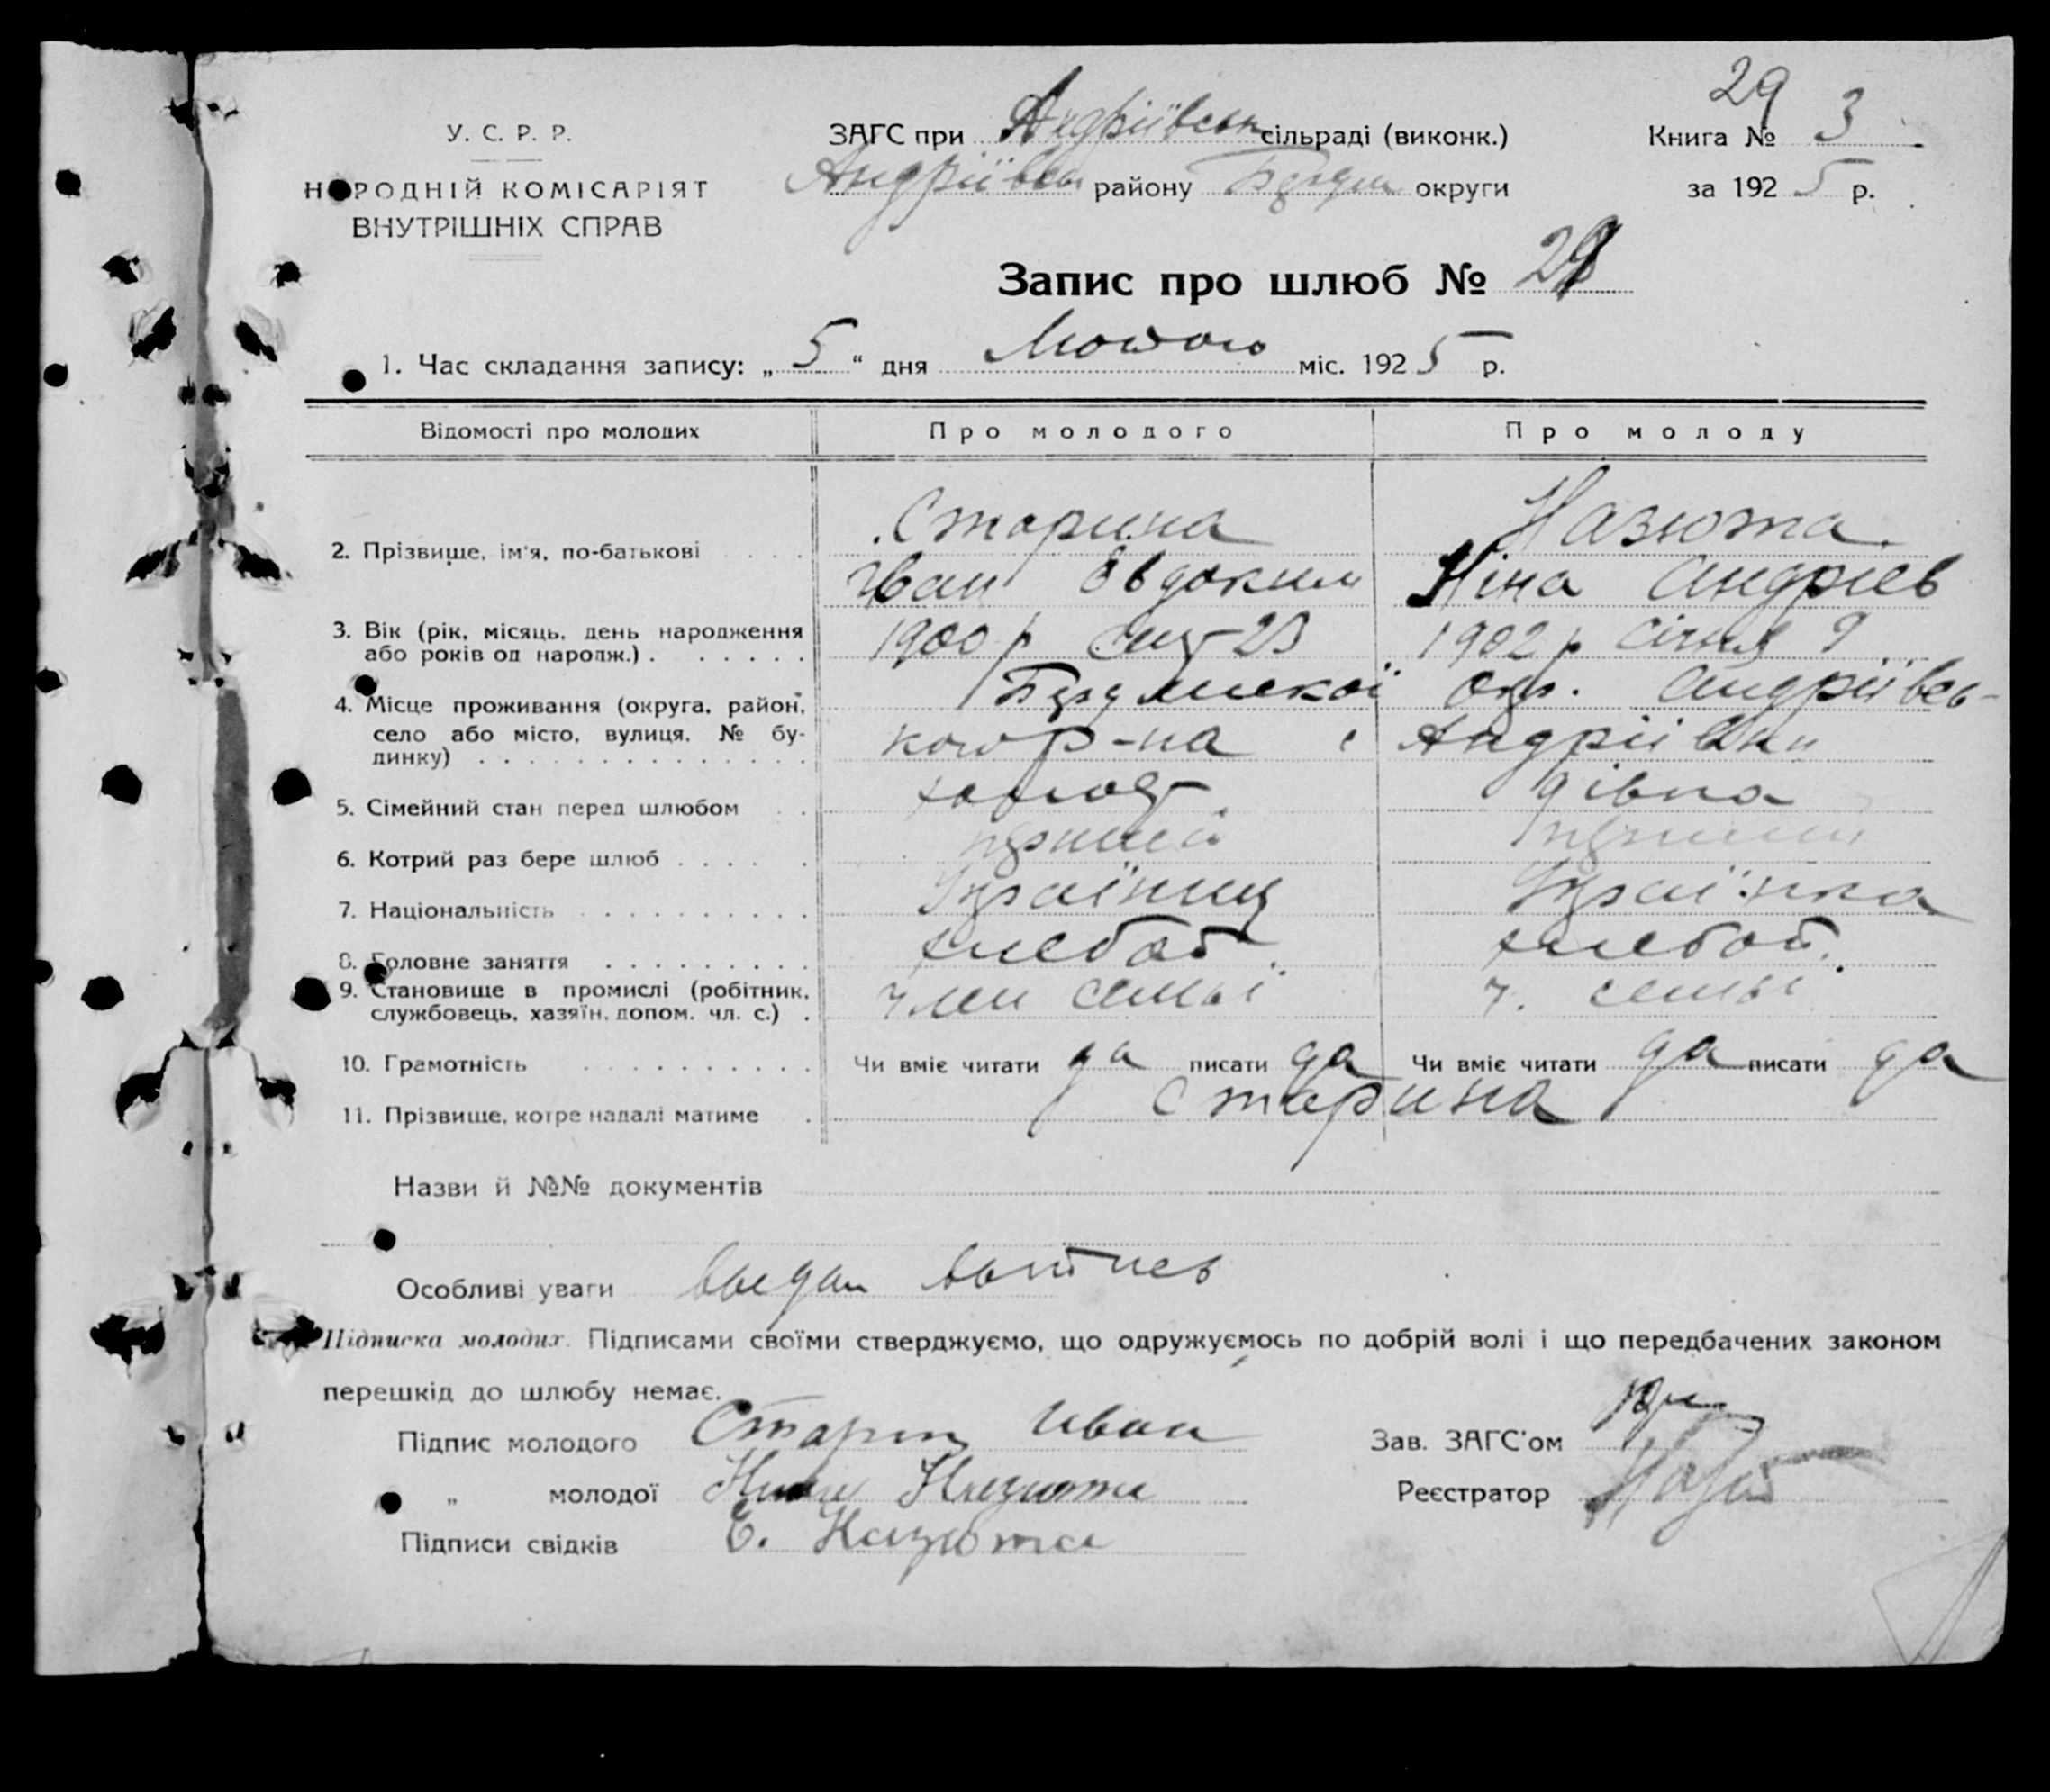 29
У. С. Р. Р.
НАРОДНІЙ КОМІСАРІЯТ
ВНУТРІШНІХ СПРАВ
ЗАГС при Андріївськ сільраді (виконк.)
Андріївськ району округи
Книга № 3
за 1925 р.
Запис про шлюб №
1. Час складання запису: „ 5 “ дня Лютого міс. 1925 р.
Відомості про молодих Про молодого Про молоду
2. Прізвище, ім'я, по-батькові
Старина Назюта
Іван Овдоким Ніна Андрієв
3. Вік (рік, місяць, день народження
або років од народж.)
1900 р 1902 р Січня 9
4. Місце проживання (округа, район,
село або місто, вулиця, № бу-
динку)
окр. Андріївсь-
кого р-на с Андріївки
5. Сімейний стан перед шлюбом дівка
6. Котрий раз бере шлюб перший
7. Національність Українец Українка
8. Головне заняття хлебоб. хлебоб.
9. Становище в промислі (робітник,
службовець, хазяїн, допом. чл. с.)
член семьі ч. семьі
10. Грамотність Чи вміє читати да писати да Чи вміє читати да писати да
11. Прізвище, котре надалі матиме Старина
Назви й №№ документів
Особливі уваги
Підписка молодих. Підписами своїми стверджуємо, що одружуємось по добрій волі і що передбачених законом
перешкід до шлюбу немає.
Підпис молодого Иван
„ молодої Назюта
Підписи свідків Є. Назюта
Зав. ЗАГС'ом
Реєстратор